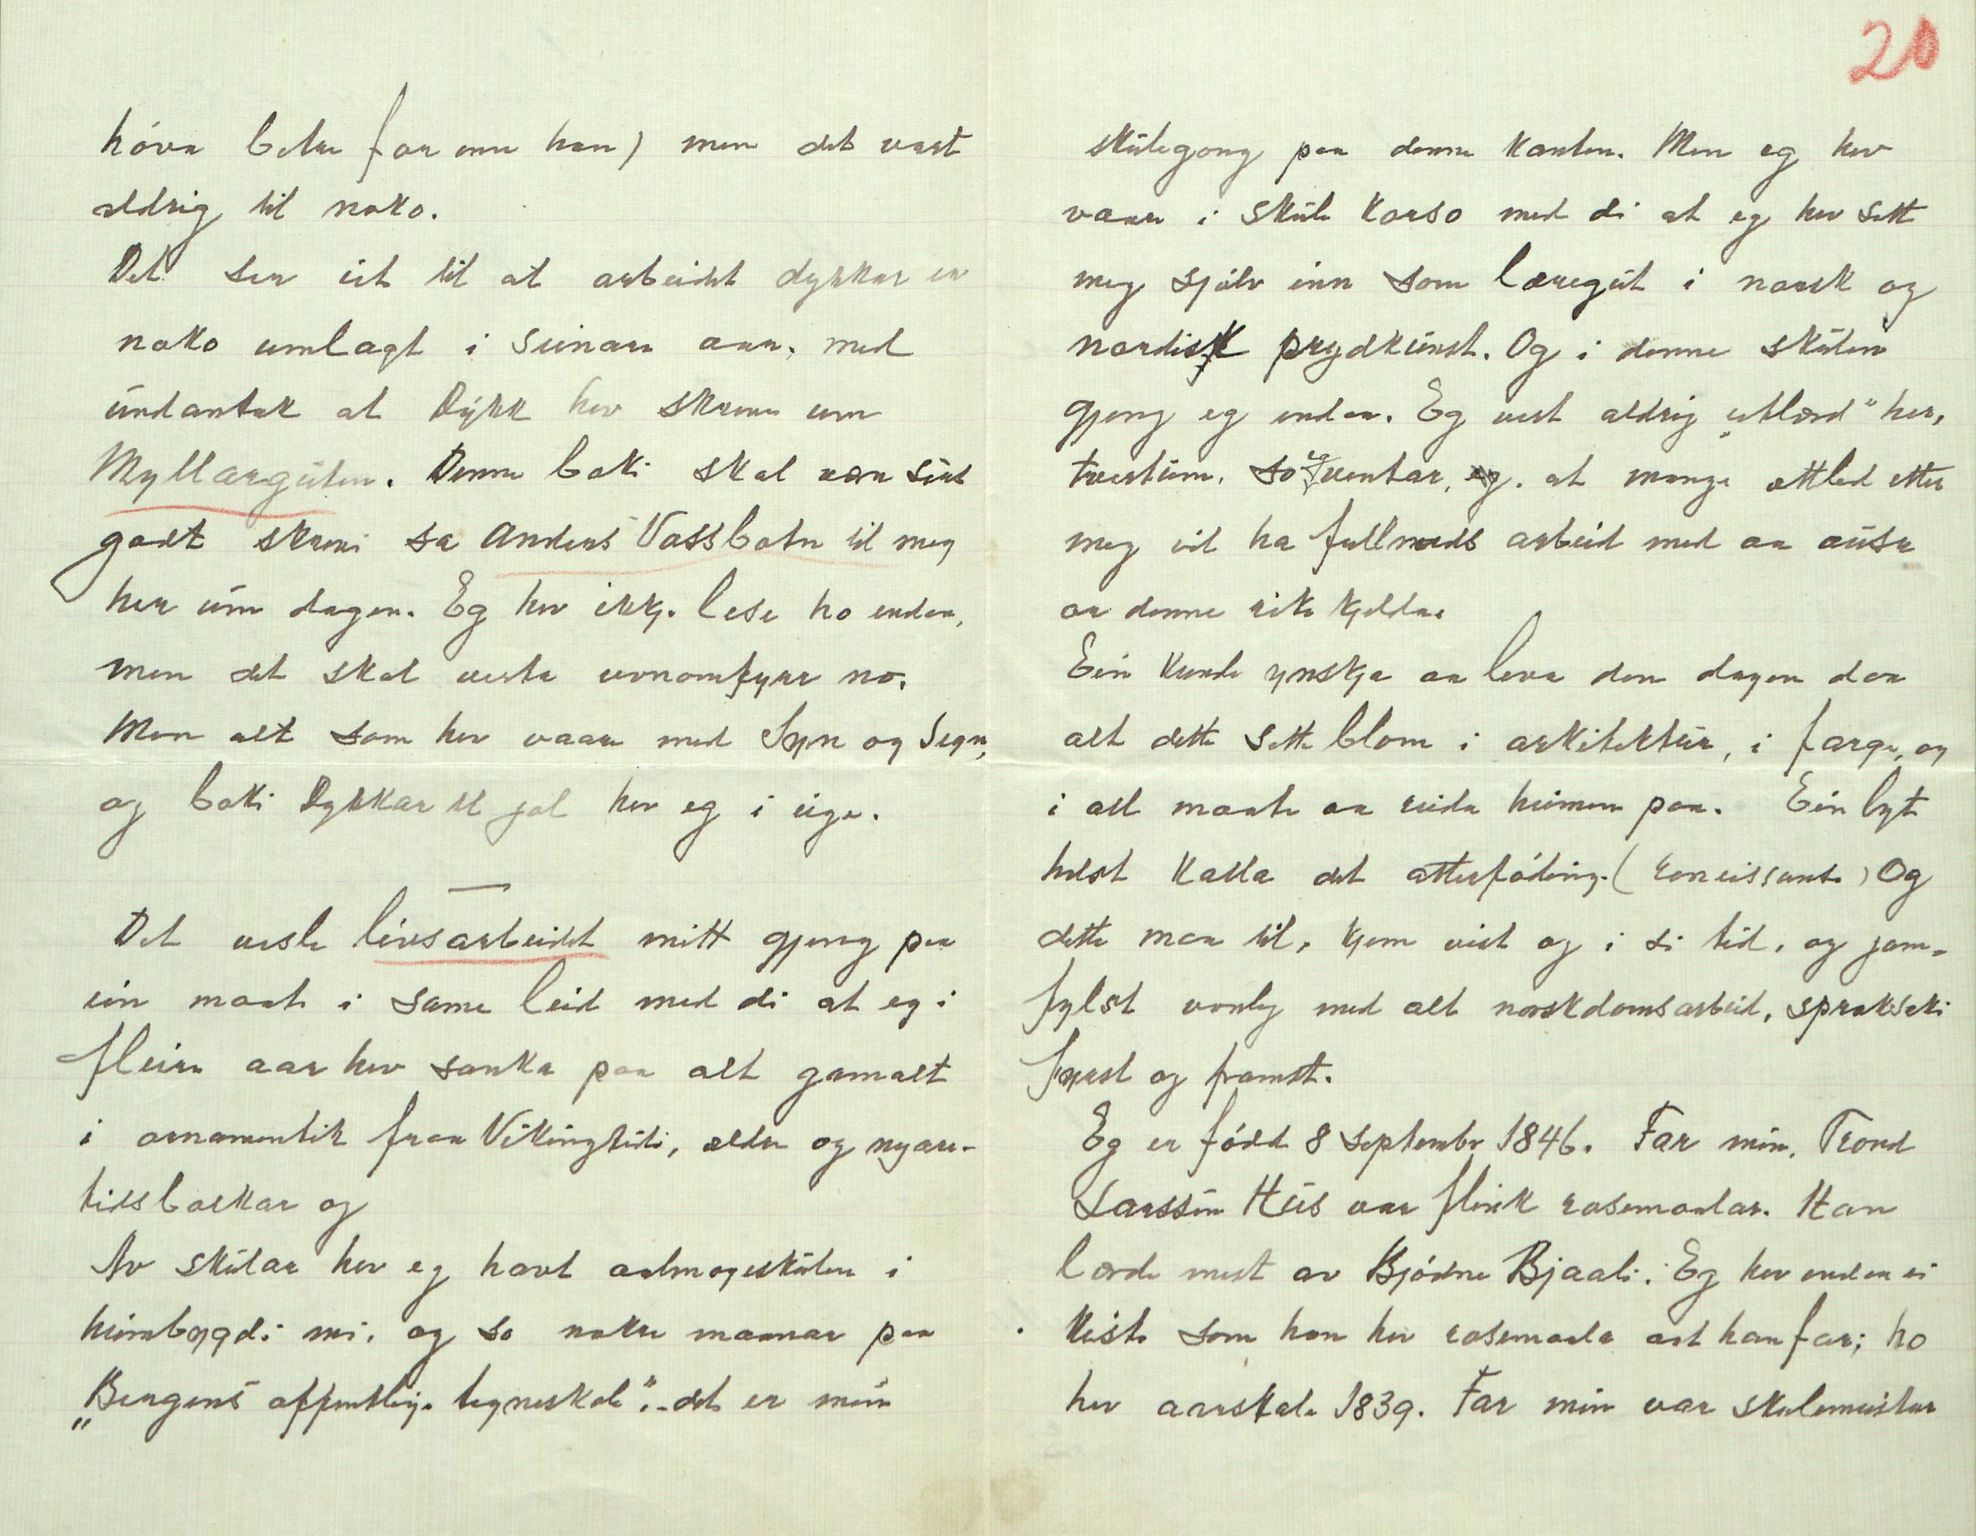 20
hóva betre for enn han) men det vart
aldrig til noko.
Det ser ut til at arbeidet dykkar er
noko umlagt i seinare aar, med
undantak at Dykk hev skreve um
Myllarguten. Denne boki skal vera sers
godt skrevi sa Anders Vassbotn til meg
her um dagen. Eg hev ikkj. lese ho endaa,
men det skal verta vonomfyrr no.
Men alt som hev vaare med Syn og Segn,
og boki Dykkar til jol hev eg i eige.
Det vesle livsarbeidet mitt gjeng paa
ein maate i same leid med di at eg i
fleire aar hev sanka paa alt gamalt
i ornamentik fraa Vikingtidi, eldre og nyare-
tidsbolkar og
Av skular hev eg havt aalmogeskulen i
heimbygdi mi, og so nokre maanar paa
„Bergens offentlige tegneskole". det er min
skulegong paa denne kanten. Men eg hev
vaare i skule korso med di at eg hev sett
meg sjølv inn som læregut i norsk og
nordisk prydkunst. Og i denne skulen
gjeng eg endaa. Eg vert aldrig „utlærd" her,
tvertum, so eg ventar, at mange ættled etter
meg vil ha fullnøds arbeid med aa ausa
or denne rike kjelda.
Ein kunde ynskja aa leva den dagen daa
alt dette sette blom i arkitektur, i farge, og
i all maate aa reida heimen paa. Ein lyt
helst kalla det atterføding. (reneissanse) Og
dette maa til, kjem vist og i si tid, og jam-
fylst vonleg med alt norskdomsarbeid, spraksaki
fyrst og framst.
Eg er fødd 8 septembr 1846. Far min, Trond
Larssen Hus var flink rosemaalar. Han
lærde mest av Bjódne Bjaali. Eg hev endaa ei
kiste som han hev rosemaala aat han far; ho
hev aarstale 1839. Far min var skulemeistar